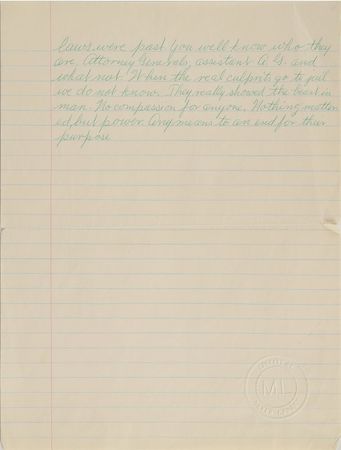 laws were past you well know who they
are Attorney Generals, assistant A. G. and
what not When the real culprits go to jail
we do not know. They really showed the beast in
man. No compassion for anyone. Nothing matter-
ed, but power. Any means to an end for their
purpose
ML